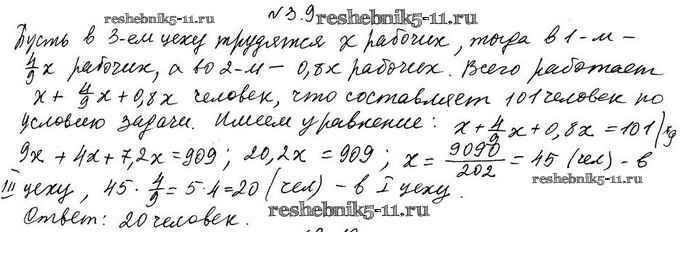 №3.9
reshebnik5-11.ru
Пусть в 3-ем цеху трудятся x рабочих, тогда в 1-м –
4/9 x рабочих, а во 2-м – 0,8x рабочих. Всего работает
x + 4/9 x + 0,8x человек, что составляет 101 человек по
условию задачи. Имеем уравнение: x + 4/9 x + 0,8x = 101 | ·9
9x + 4x + 7,2x = 909; 20,2x = 909; x = 9090/202 = 45 (чел) – в
reshebnik5-11.ru
III цеху, 45 · 4/9 = 5·4 = 20 (чел) – в I цеху.
Ответ: 20 человек.
reshebnik5-11.ru